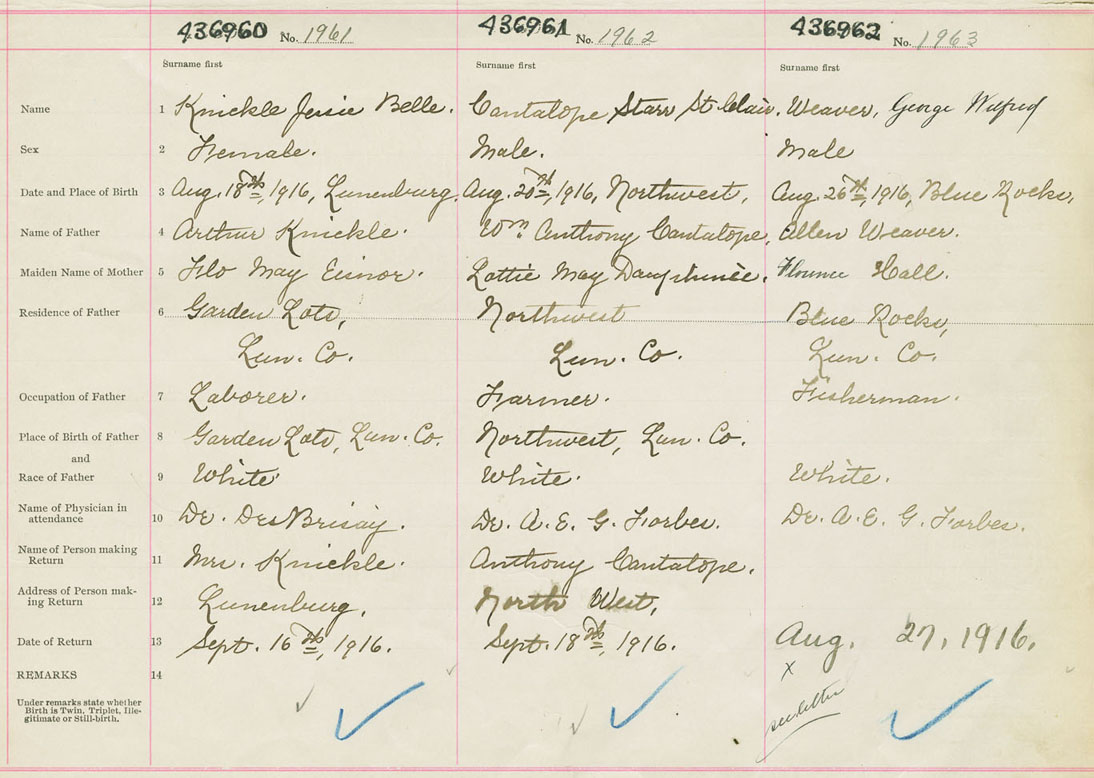 436960 No. 1961 436961 No. 1962 436962 No. 1963
Surname first Surname first Surname first
Name 1 Knickle Jessie Belle. Cantalope Starr St. Clair. Weaver, George Wilfred
Sex 2 Female. Male. Male
Date and Place of Birth 3 Aug. 18th, 1916, Lunenburg. Aug. 20th, 1916, Northwest, Aug. 26th, 1916, Blue Rocks,
Name of Father 4 Arthur Knickle. Wm. Anthony Cantalope, Allen Weaver.
Maiden Name of Mother 5 Flo May Eisnor. Lottie May Dauphinée. Florence Hall.
Residence of Father 6 Garden Lots, Northwest Blue Rocks,
Lun. Co. Lun. Co. Lun. Co.
Occupation of Father 7 Laborer. Farmer. Fisherman.
Place of Birth of Father 8 Garden Lots, Lun. Co. Northwest, Lun. Co.
and
Race of Father 9 White White. White.
Name of Physician in
attendance 10 Dr. DesBrisay. Dr. A. E. G. Forbes. Dr. A. E. G. Forbes.
Name of Person making
Return 11 Mrs. Knickle. Anthony Cantalope.
Address of Person mak-
ing Return 12 Lunenburg, North West,
Date of Return 13 Sept. 16th, 1916. Sept. 18th, 1916. Aug. 27, 1916.
REMARKS 14 x
Under remarks state whether
Birth is Twin, Triplet, Ille-
gitimate or Still-birth.
see letter